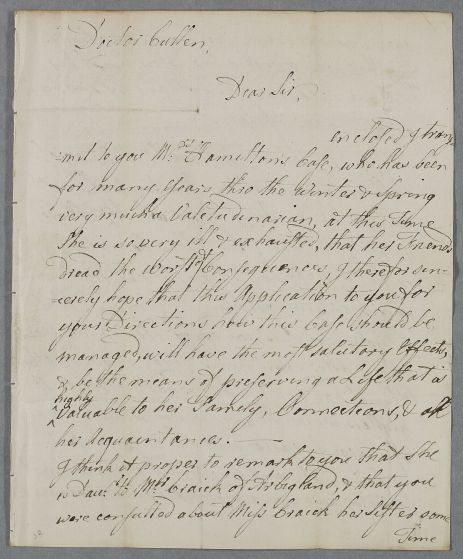 Doctor Cullen,
Dear Sir,
enclosed I trans
=mit to you Mrs Hamiltons Case, who has been
for many Years, thro the Winter & Spring
very much a Valetudinarian, at this Time
She is so very ill & exhausted, that her Friends
dread the worst of Consequences, I therefor sin-
=cerely hope that this Application to you for
your Directions how this Case should be
managed, will have the most salutory Effects,
& be the means of preserving a Life that is
highly
Valuable to her Family, Connections, & all
her Acquaintances. —
I think it proper to remark to you that She
is Daur. to Mrs Craick of Arbigland, & that you
were consulted about Miss Craick her Sister some
Time